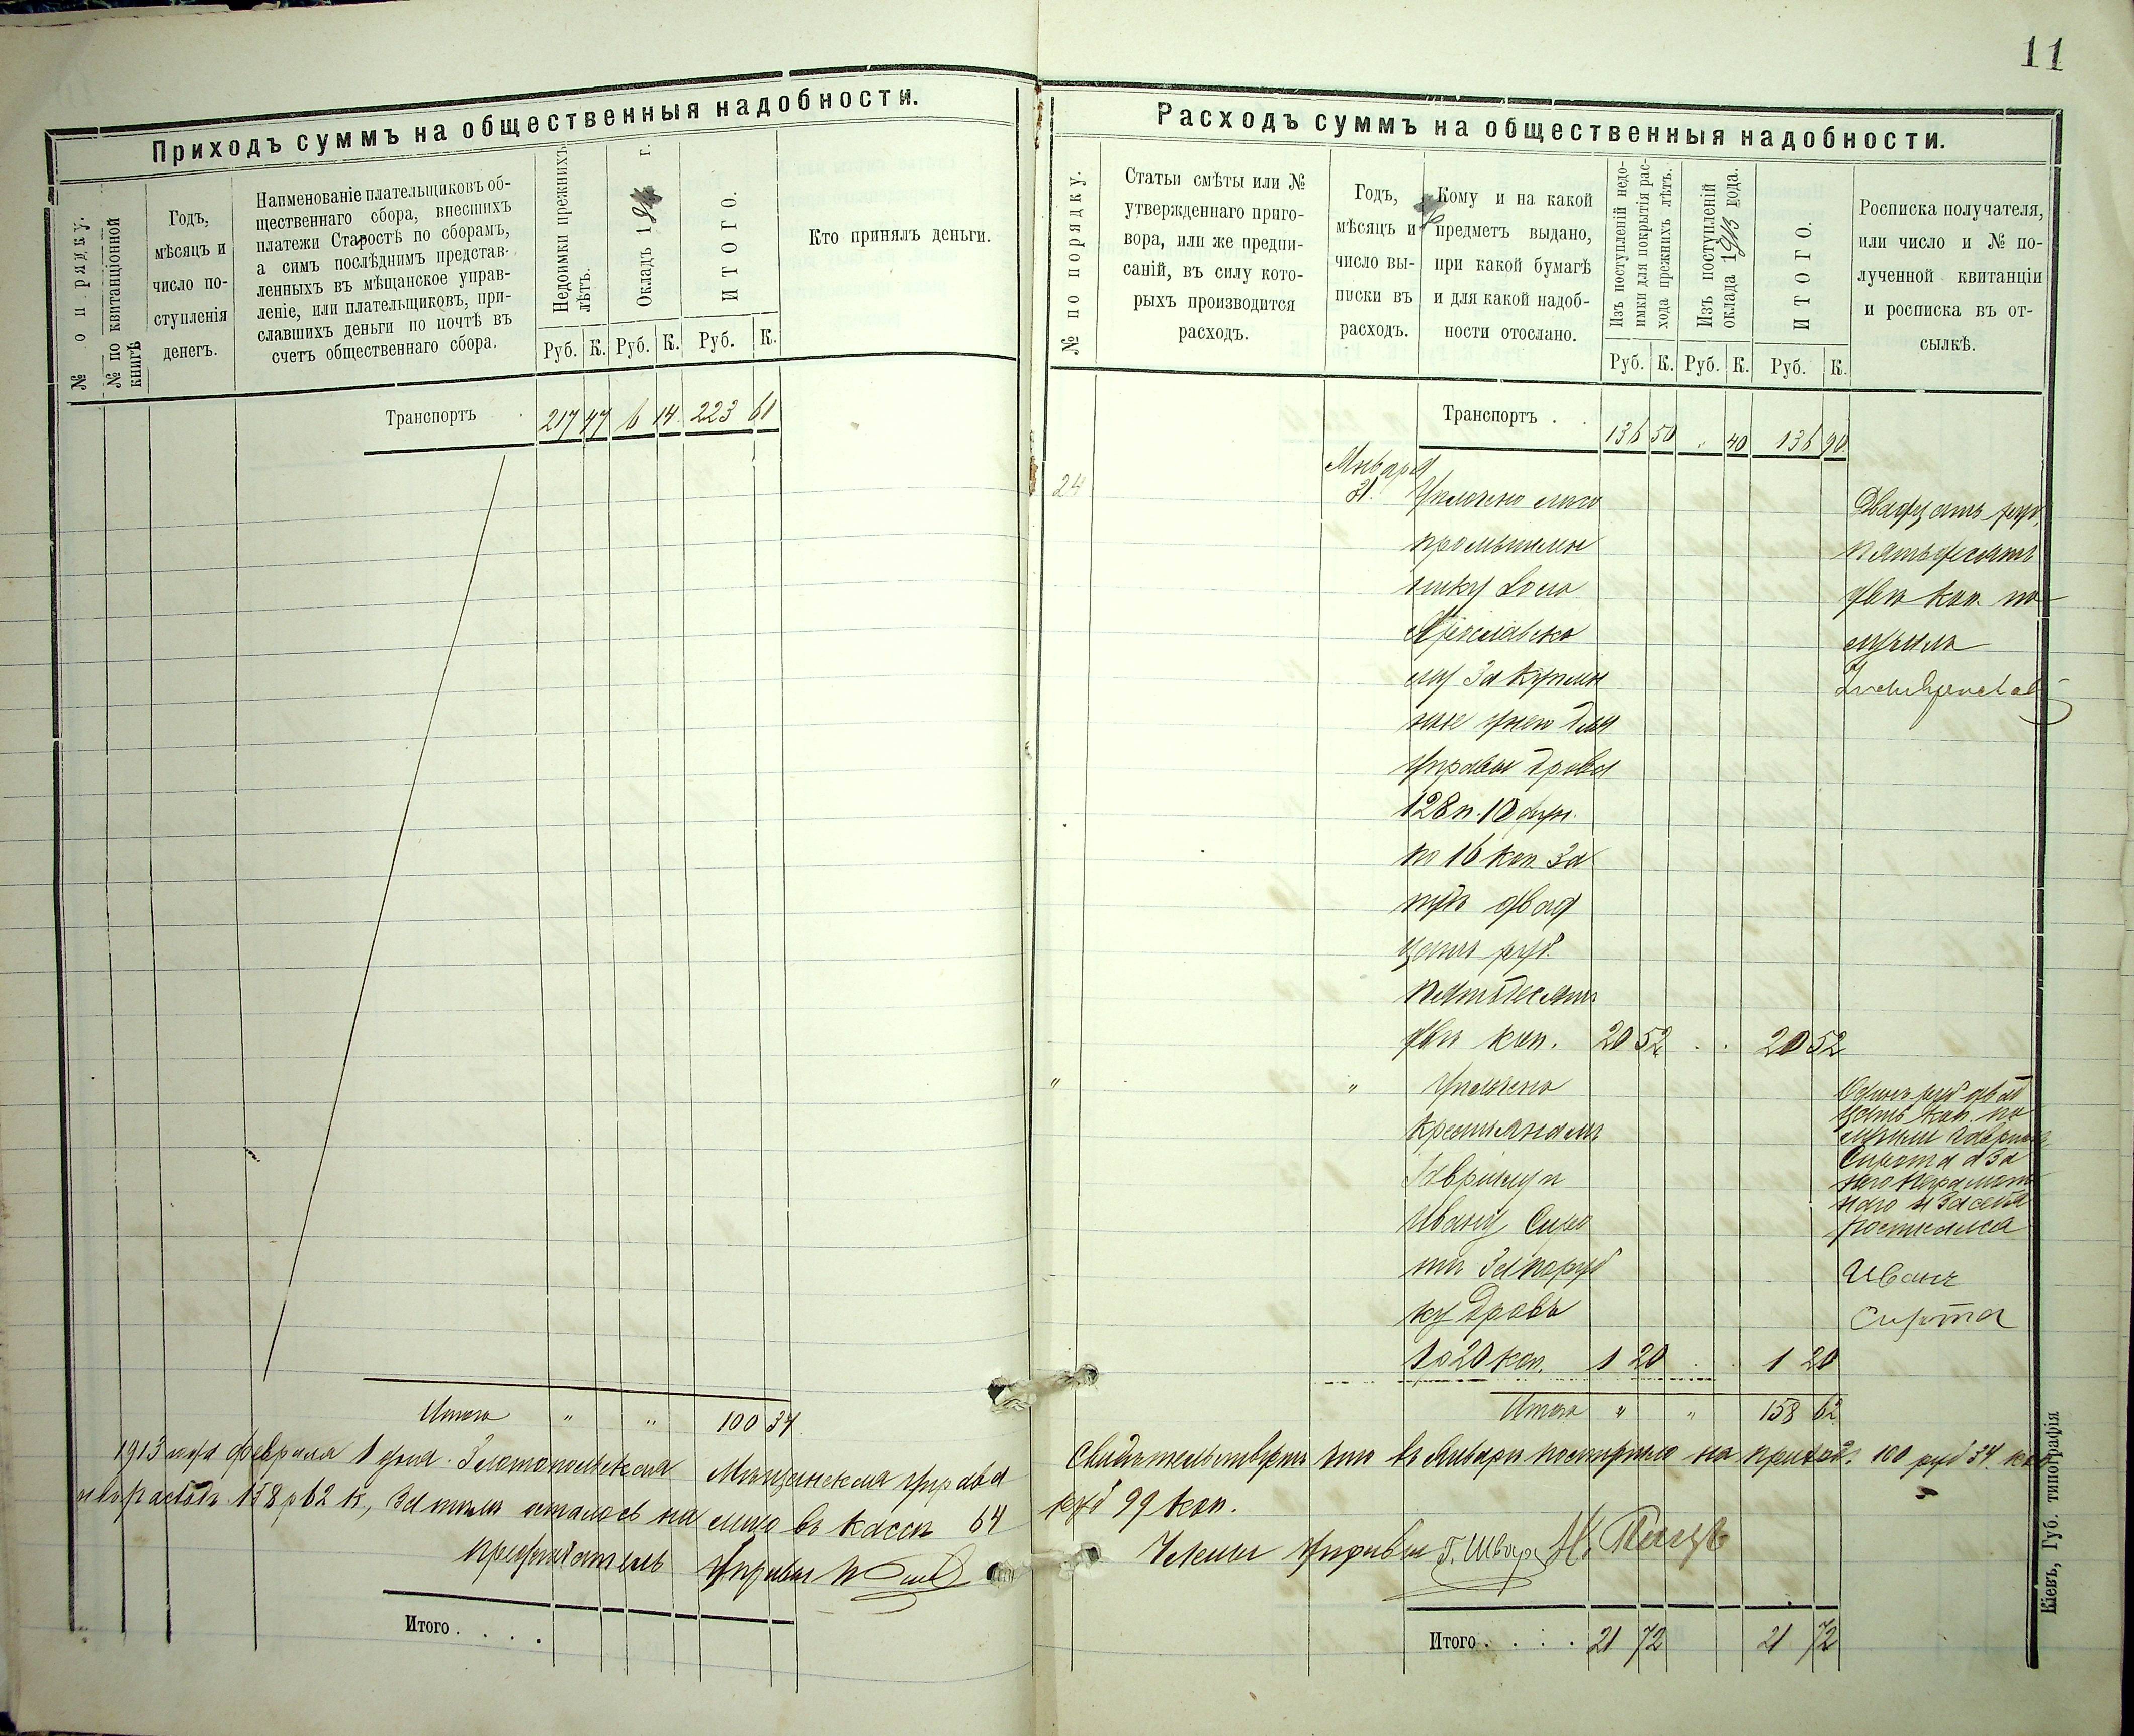 11
Приходъ суммъ на общественныя надобности.
№ по порядку.
№ по квитанціонной книгѣ
Годъ,
мѣсяцъ и
число по-
ступленія
денегъ.
Наименованіе плательщиковъ об-
щественнаго сбора, внесшихъ
платежи Старостѣ по сборамъ,
а симъ послѣднимъ представ-
ленныхъ въ мѣщанское управ-
леніе, или плательщиковъ, при-
славшихъ деньги по почтѣ въ
счетъ общественнаго сбора.
Недоимки прежнихъ
лѣтъ.
Окладъ 1 г.
ИТОГО.
Руб. К. Руб. К. Руб. К.
Кто принялъ деньги.
Транспортъ 217 47 6 14 223 61
Итого " " 100 34
1913 года февраля 1 дня. Златопольская Мѣщанская управа
израсх 158 р 62 к., затѣмъ осталось на лицо въ кассѣ 64
предсѣдатель Управы
Итого . . . .
Расходъ суммъ на общественныя надобности.
№ по порядку.
Статьи смѣты или №
утвержденнаго приго-
вора, или же предпи-
саній, въ силу кото-
рыхъ производится
расходъ.
Годъ,
мѣсяцъ и
число вы-
писки въ
расходъ.
Кому и на какой
предметъ выдано,
при какой бумагѣ
и для какой надоб-
ности отослано.
Изъ поступленій недо-
имки для покрытія рас-
хода прежнихъ лѣтъ.
Изъ поступленій
оклада 1913 года.
ИТОГО.
Руб. К. Руб. К. Руб. К.
Росписка получателя,
или число и № по-
лученной квитанціи
и росписка въ от-
сылкѣ.
Транспортъ . . 136 50 " 40 136 90
24
Января
31.
Уплачено лѣсо
промышлен
нику
му За куплен
ные у него для
управы дрова
128 п. 10 фун.
по 16 коп. за
пудъ двад
цать руб.
пятьдесятъ
двѣ коп. 20 52 . . 20 52
Двадцать руб.
пятьдесятъ
двѣ коп. по
лучилъ
" " Уплачено
крестьянамъ
Гаврилу и
Ивану Сиро
тѣ За поруб
ку дровъ
1 р 20 коп. 1 20 . . 1 20
Одинъ руб двад
цать коп. по
лучили Гаврило
Сирота а за
него неграмот
наго и за себя
росписался
Иванъ
Сирота
Итого " " 158 62
Свидѣтельствуетъ что въ Январѣ поступило на приходъ 100 руб 34 коп
руб 99 коп.
Члены Управы Г. Шварц
Итого . . . . 21 72 21 72
Кіевъ, Губ. типографія